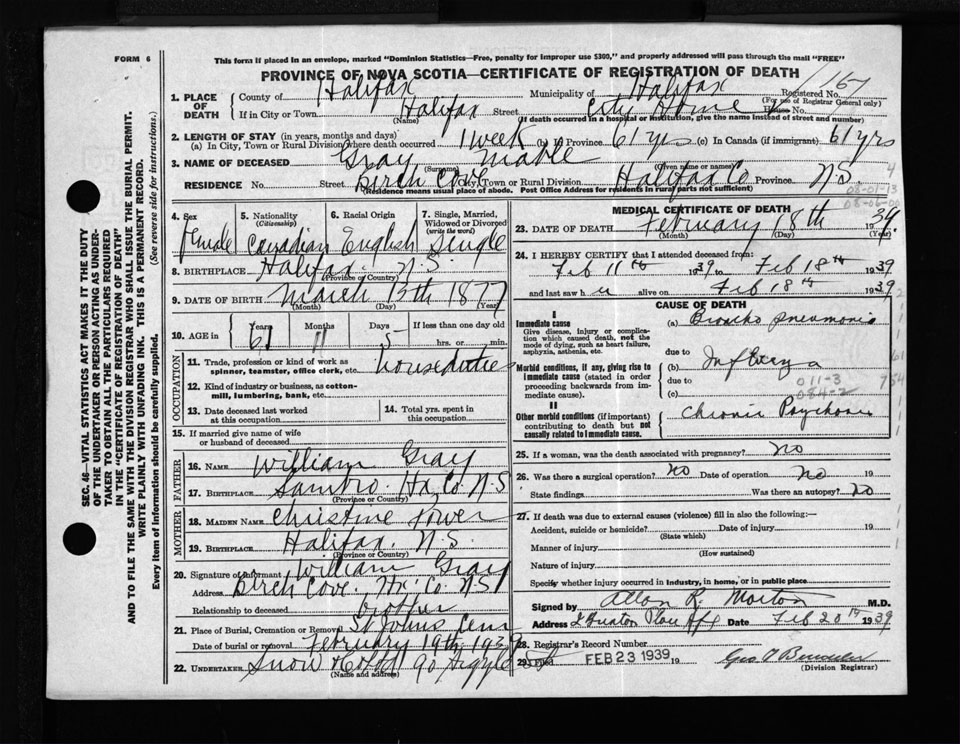 FORM 6
This form if placed in an envelope, marked "Dominion Statistics—Free, penalty for improper use $300," and properly addressed will pass through the mail "FREE"
PROVINCE OF NOVA SCOTIA—CERTIFICATE OF REGISTRATION OF DEATH
SEC. 46—VITAL STATISTICS ACT MAKES IT THE DUTY
OF THE UNDERTAKER OR PERSON ACTING AS UNDER-
TAKER TO OBTAIN ALL THE PARTICULARS REQUIRED
IN THE "CERTIFICATE OF REGISTRATION OF DEATH"
AND TO FILE THE SAME WITH THE DIVISION REGISTRAR WHO SHALL ISSUE THE BURIAL PERMIT.
WRITE PLAINLY WITH UNFADING INK. THIS IS A PERMANENT RECORD.
Every item of information should be carefully supplied. (See reverse side for instructions.)
1. PLACE OF DEATH County of Halifax Municipality of Halifax Registered No. 167
(For use of Registrar General only)
If in City or Town Halifax Street City Home House No.
(Name) (If death occurred in a hospital or institution, give the name instead of street and number)
2. LENGTH OF STAY (in years, months and days)
(a) In City, Town or Rural Division where death occurred 1 week (b) In Province 61 yrs (c) In Canada (if immigrant) 61 yrs
3. NAME OF DECEASED Gray Mable
(Surname) (Given name or names)
RESIDENCE No. Street Birch Cove City, Town or Rural Division Halifax Co Province N.S.
(Residence means usual place of abode. Post Office Address for residents in rural parts not sufficient)
4
08-01-13
08-06-00
4. Sex Female
5. Nationality (Citizenship) Canadian
6. Racial Origin English
7. Single, Married, Widowed or Divorced (write the word) Single
8. BIRTHPLACE Halifax N.S.
(Province or Country)
9. DATE OF BIRTH March 13th 1877
(Month) (Day) (Year)
10. AGE in Years 61 Months 11 Days 5 If less than one day old hrs. or min.
OCCUPATION
11. Trade, profession or kind of work as spinner, teamster, office clerk, etc. house duties
12. Kind of industry or business, as cotton-mill, lumbering, bank, etc.
13. Date deceased last worked at this occupation
14. Total yrs. spent in this occupation
15. If married give name of wife or husband of deceased
FATHER
16. Name William Gray
17. Birthplace Sambro Hx. Co. N.S
(Province or Country)
MOTHER
18. Maiden Name Christine Power
19. Birthplace Halifax. N.S.
(Province or Country)
20. Signature of Informant William Gray
Address Birch Cove. Hx. Co. N.S
Relationship to deceased brother
21. Place of Burial, Cremation or Removal St Johns Cem
Date of burial or removal February 19th 1939
22. UNDERTAKER Snow 90 Argyle St
(Name and address)
MEDICAL CERTIFICATE OF DEATH
23. DATE OF DEATH February 18th 1939.
(Month) (Day) (Year)
24. I HEREBY CERTIFY that I attended deceased from:
Feb 11th 1939 to Feb 18th 1939
and last saw her alive on Feb 18th 1939
CAUSE OF DEATH
I
Immediate cause
Give disease, injury or complication which caused death, not the mode of dying, such as heart failure, asphyxia, asthenia, etc.
(a) Broncho pneumonia
due to
Morbid conditions, if any, giving rise to immediate cause (stated in order proceeding backwards from immediate cause).
(b) Influenza
due to
011-3
084-2
(c)
II
Other morbid conditions (if important) contributing to death but not causally related to immediate cause.
Chronic Psychosis
25. If a woman, was the death associated with pregnancy? no
26. Was there a surgical operation? no Date of operation no 19
State findings Was there an autopsy? no
27. If death was due to external causes (violence) fill in also the following:—
Accident, suicide or homicide? Date of injury 19
(State which)
Manner of injury
(How sustained)
Nature of injury
Specify whether injury occurred in industry, in home, or in public place
Signed by Allan R. Morton M.D.
Address Place Hfx Date Feb 20th 1939
28. Registrar's Record Number
29. Filed FEB 23 1939 19
(Division Registrar)